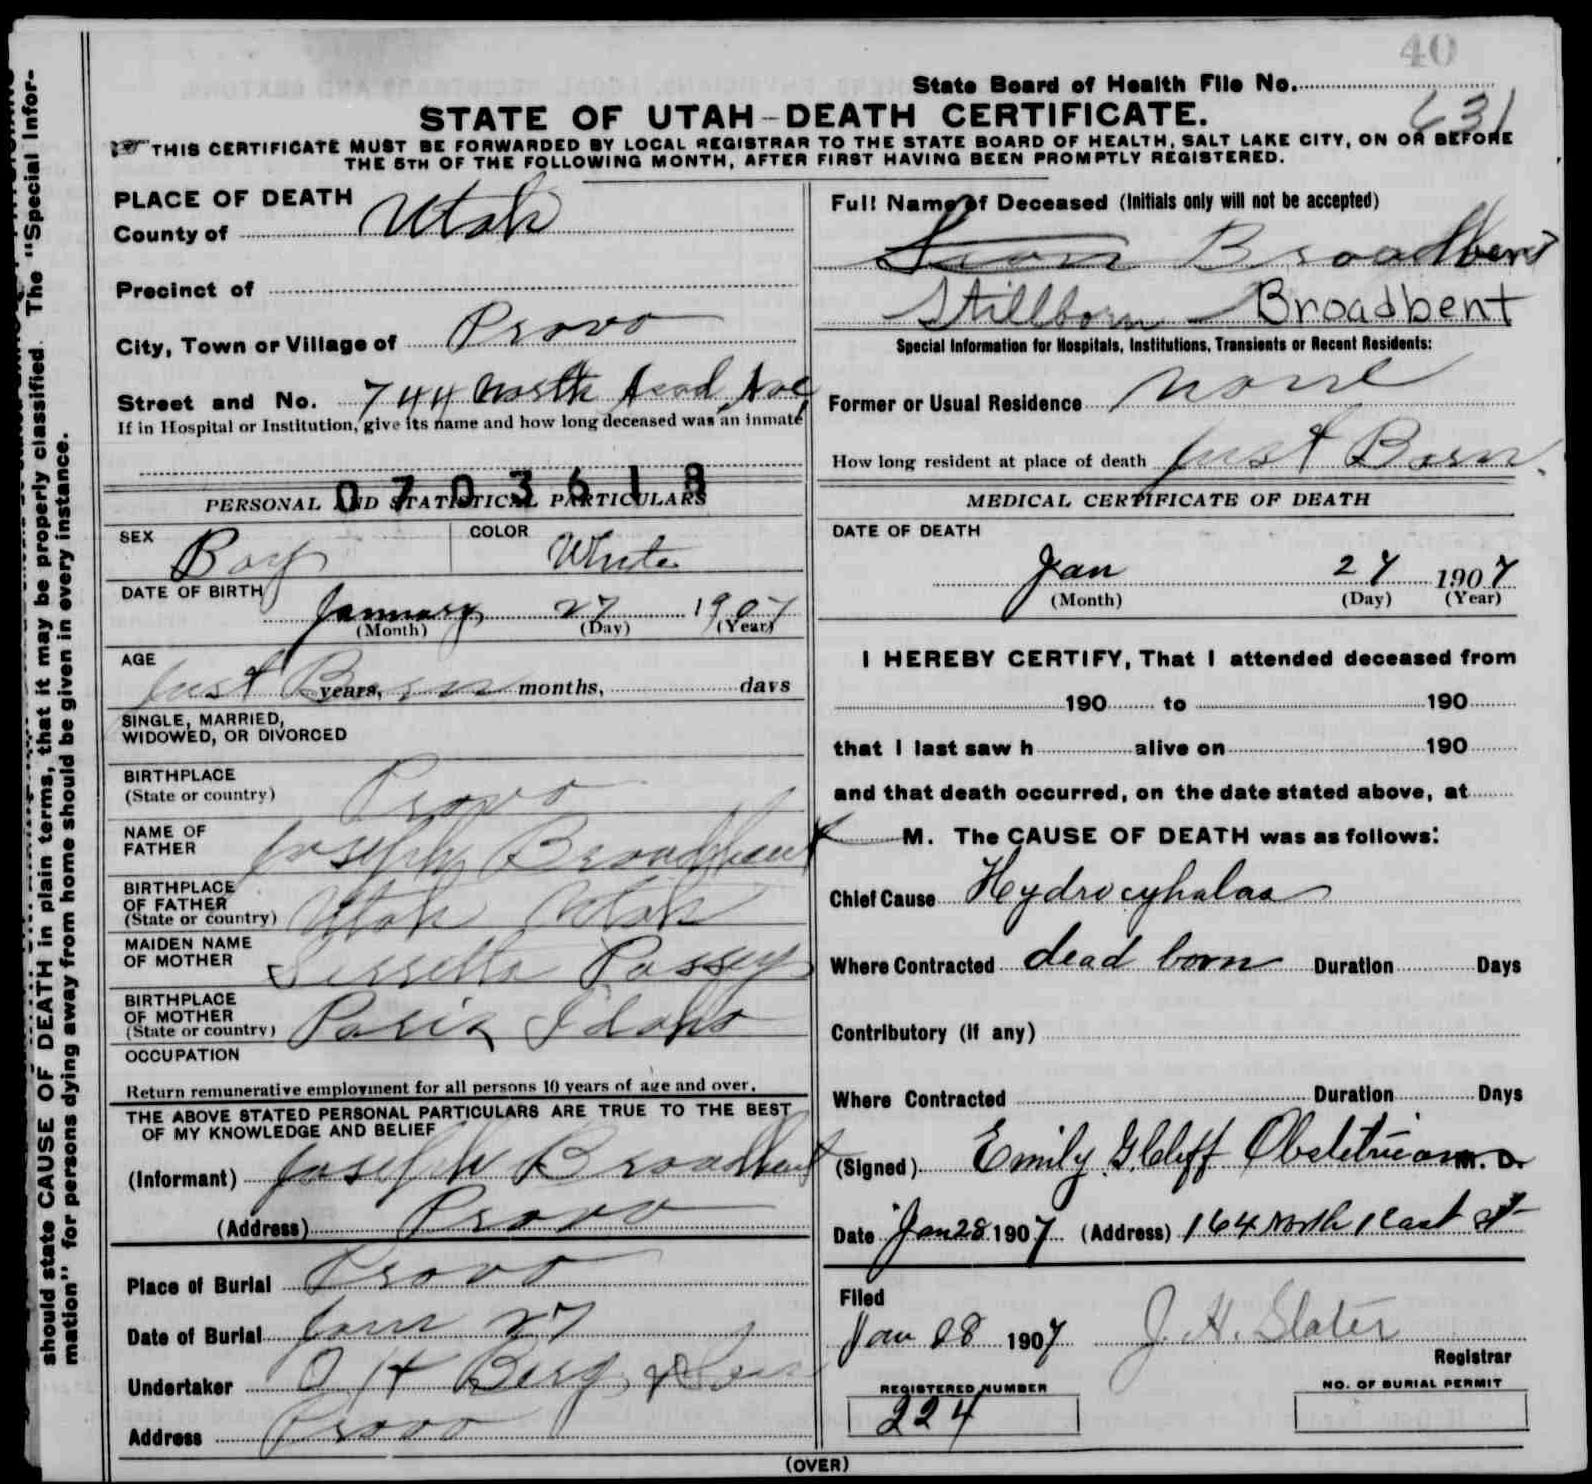 40
State Board of Health File No.
631
STATE OF UTAH-DEATH CERTIFICATE.
THIS CERTIFICATE MUST BE FORWARDED BY LOCAL REGISTRAR TO THE STATE BOARD OF HEALTH, SALT LAKE CITY, ON OR BEFORE
THE 5TH OF THE FOLLOWING MONTH, AFTER FIRST HAVING BEEN PROMPTLY REGISTERED.
should state CAUSE OF DEATH in plain terms, that it may be properly classified. The "Special Infor-
mation" for persons dying away from home should be given in every instance.
PLACE OF DEATH
County of Utah
Precinct of
City, Town or Village of Provo
Street and No. 744 North Acad Ave
If in Hospital or Institution, give its name and how long deceased was an inmate
0703618
PERSONAL AND STATISTICAL PARTICULARS
SEX Boy COLOR White
DATE OF BIRTH
January 27 1907
(Month) (Day) (Year)
AGE
Just Born years, months, days
SINGLE, MARRIED,
WIDOWED, OR DIVORCED
BIRTHPLACE
(State or country) Provo
NAME OF
FATHER Joseph Broadbent
BIRTHPLACE
OF FATHER
(State or country) Utah Utah
MAIDEN NAME
OF MOTHER Passey
BIRTHPLACE
OF MOTHER
(State or country) Paris Idaho
OCCUPATION
Return remunerative employment for all persons 10 years of age and over.
THE ABOVE STATED PERSONAL PARTICULARS ARE TRUE TO THE BEST
OF MY KNOWLEDGE AND BELIEF
(Informant) Joseph Broadbent
(Address) Provo
Place of Burial Provo
Date of Burial Jan 27
Undertaker O H Berg & Son
Address Provo
Full Name of Deceased (Initials only will not be accepted)
Broadbent
Stillborn Broadbent
Special Information for Hospitals, Institutions, Transients or Recent Residents:
Former or Usual Residence none
How long resident at place of death Just Born.
MEDICAL CERTIFICATE OF DEATH
DATE OF DEATH
Jan 27 1907
(Month) (Day) (Year)
I HEREBY CERTIFY, That I attended deceased from
190 to 190
that I last saw h alive on 190
and that death occurred, on the date stated above, at
M. The CAUSE OF DEATH was as follows:
Chief Cause Hydrocyhalas
Where Contracted dead born Duration Days
Contributory (if any)
Where Contracted Duration Days
(Signed) Emily G. Cluff Obstetrician M. D.
Date Jan 28 1907 (Address) 164 North 1 East st
Filed
Jan 28 1907 J. H. Slater
Registrar
REGISTERED NUMBER
224
NO. OF BURIAL PERMIT
(OVER)